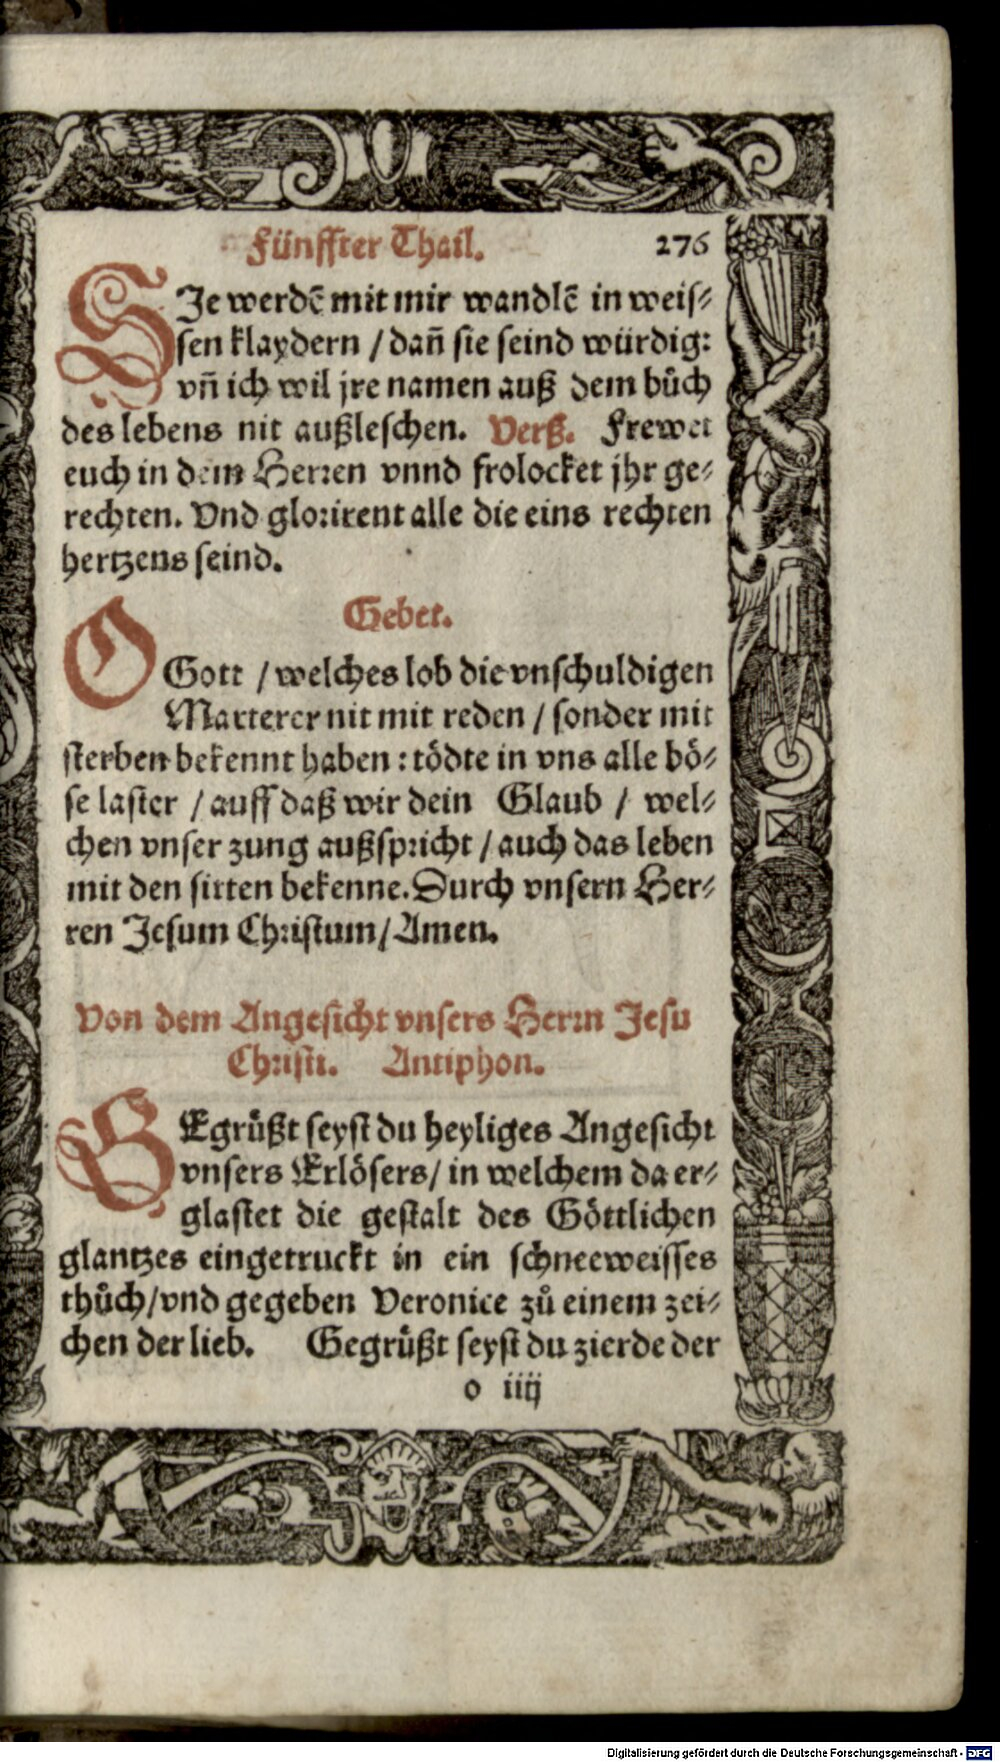 Fünffter Thail. 276
SJe werdē mit mir wandlē in weis⸗
sen klaydern / dañ sie seind würdig:
vñ ich wil jre namen auß dem bůch
des lebens nit außleschen. Verß. Frewet
euch in dem Herren vnnd frolocket jhr ge⸗
rechten. Vnd glorirent alle die eins rechten
hertzens seind.
Gebet.
O Gott / welches lob die vnschuldigen
Marterer nit mit reden / sonder mit
sterben bekennt haben : tödte in vns alle bö⸗
se laster / auff daß wir dein Glaub / wel⸗
chen vnser zung außspricht / auch das leben
mit den sitten bekenne. Durch vnsern Her⸗
ren Jesum Christum / Amen.
Von dem Angesicht vnsers Herrn Jesu
Christi. Antiphon.
GEgrůßt seyst du heyliges Angesicht
vnsers Erlösers / in welchem da er⸗
glastet die gestalt des Göttlichen
glantzes eingetruckt in ein schneeweisses
thůch / vnd gegeben Veronice zů einem zei⸗
chen der lieb. Gegrůßt seyst du zierde der
o iiij
Digitalisierung gefördert durch die Deutsche Forschungsgemeinschaft - DFG